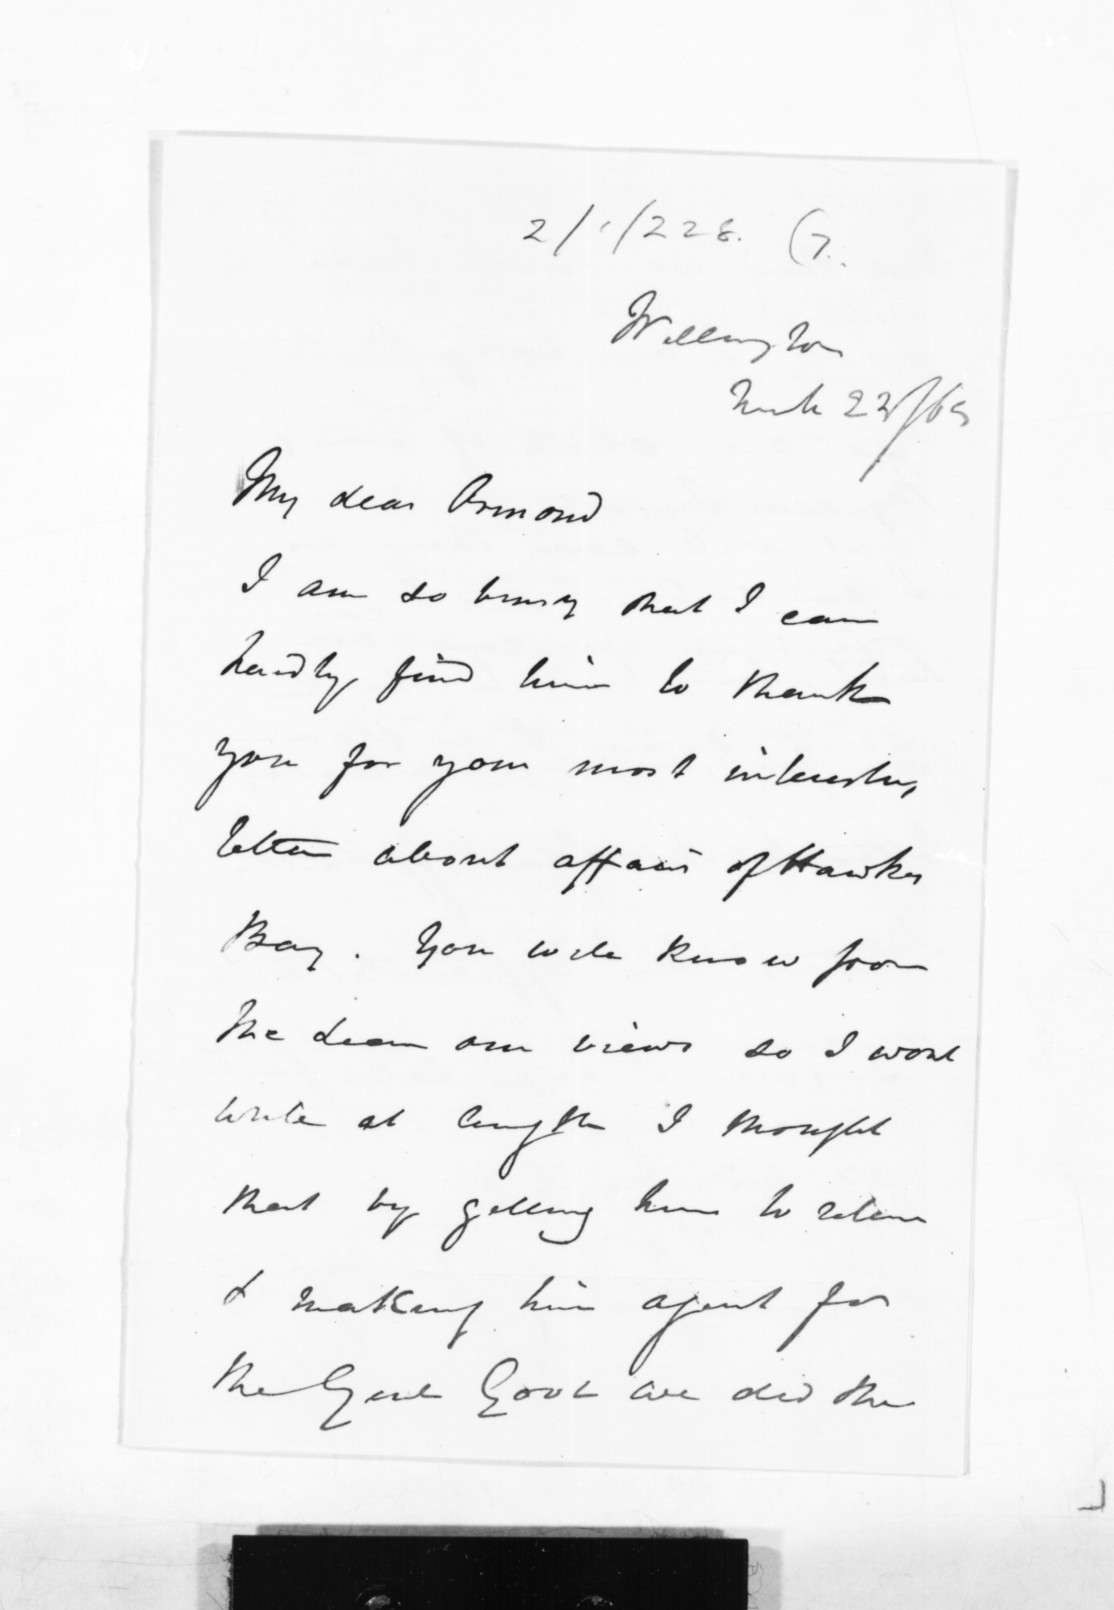 2/1/228. G.
Wellington
March 22/65
My dear Ormond
I am so busy that I can
hardly find time to thank
you for your most interesting
letter about affairs of Hawkes
Bay. You will know from
the dean our views so I wont
write at length I thought
that by getting him to return
& making him agent for
the Genl Govt we did the